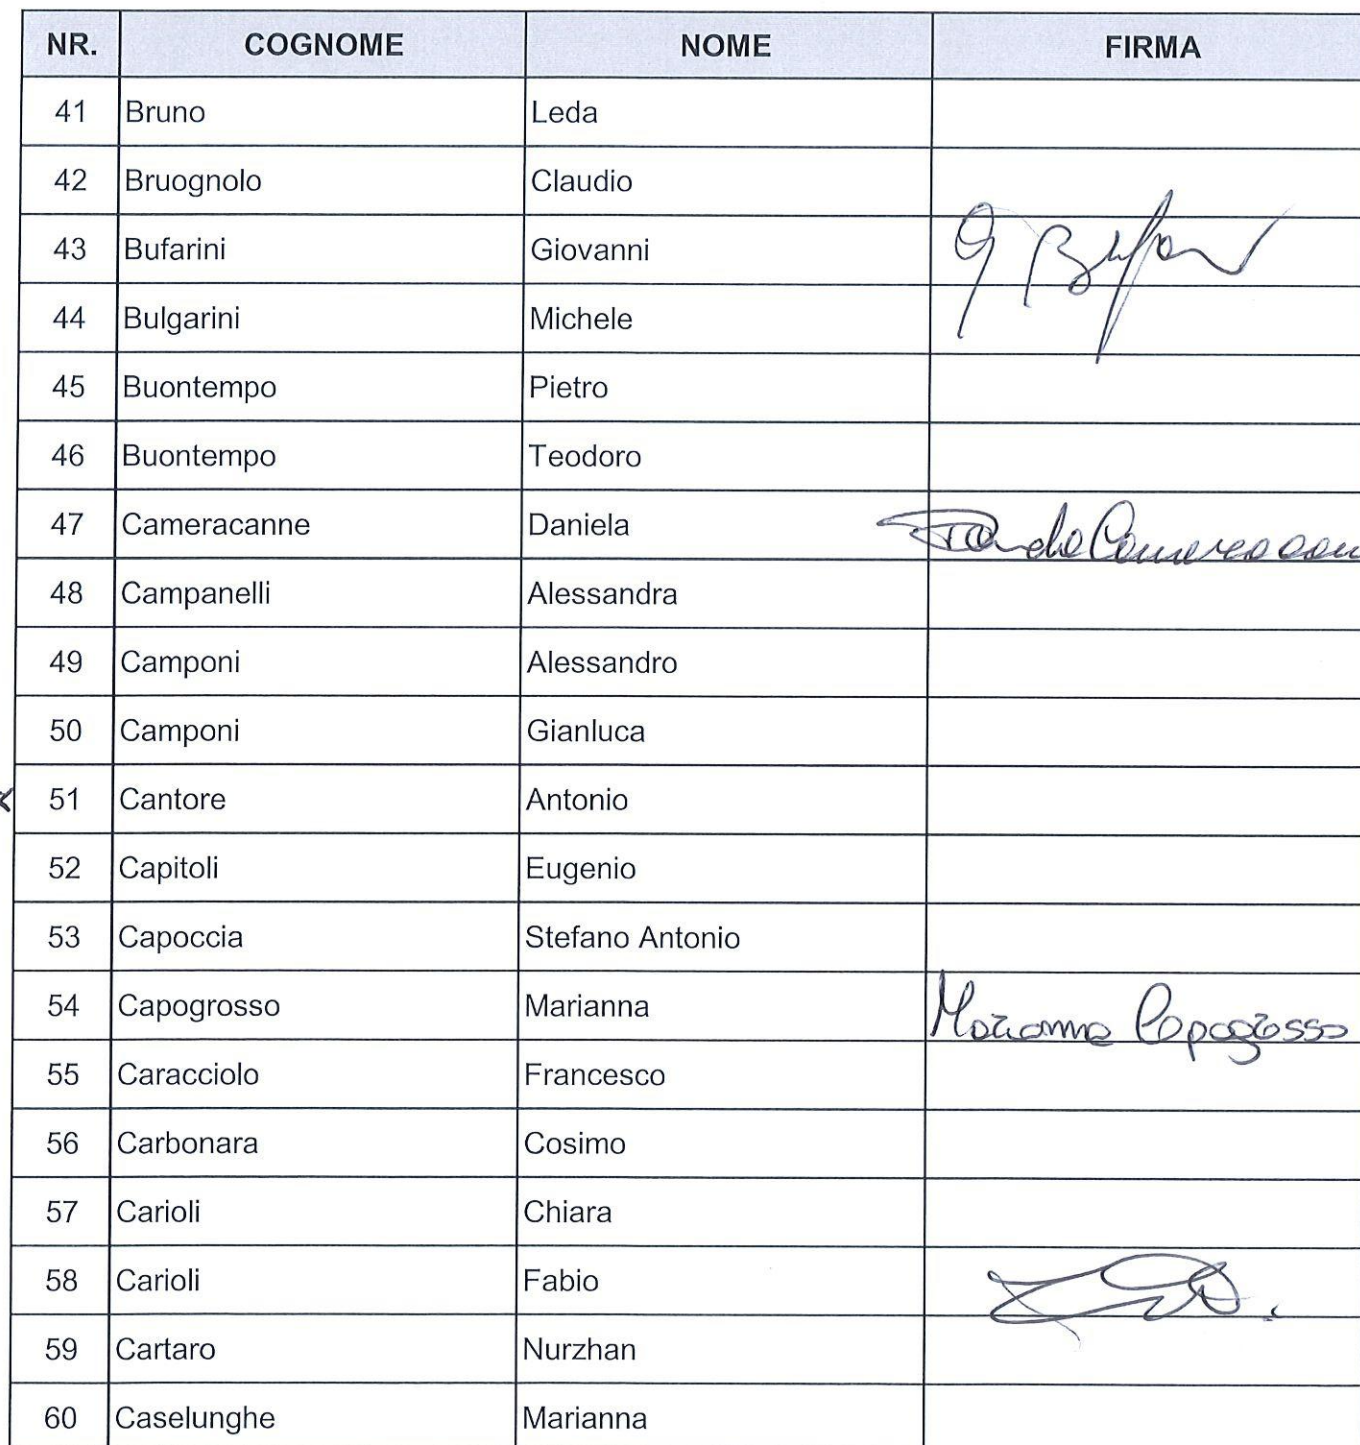 NR. COGNOME NOME FIRMA
41 Bruno Leda
42 Bruognolo Claudio
43 Bufarini Giovanni G Bufar
44 Bulgarini Michele
45 Buontempo Pietro
46 Buontempo Teodoro
47 Cameracanne Daniela
48 Campanelli Alessandra
49 Camponi Alessandro
50 Camponi Gianluca
51 Cantore Antonio
52 Capitoli Eugenio
53 Capoccia Stefano Antonio
54 Capogrosso Marianna Marianna Capogrosso
55 Caracciolo Francesco
56 Carbonara Cosimo
57 Carioli Chiara
58 Carioli Fabio
59 Cartaro Nurzhan
60 Caselunghe Marianna